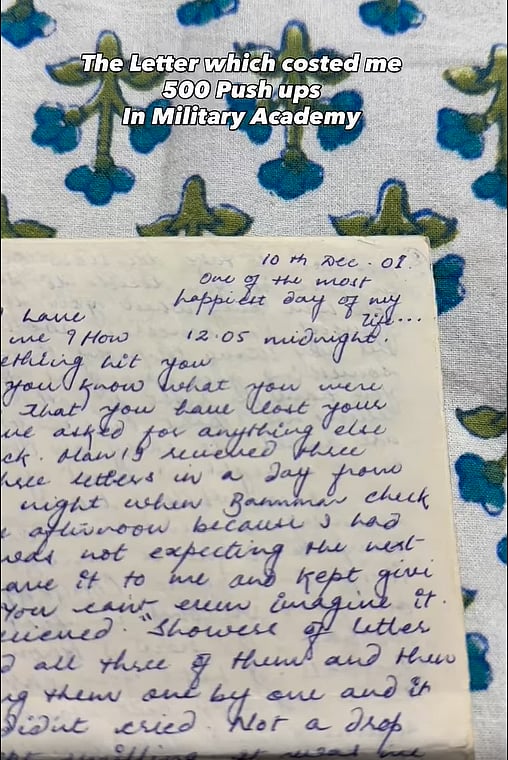 The Letter which costed me
500 Push ups
In Military Academy
10th Dec. 01.
One of the most
happiest day of my
life...
have
me ? How 12.05 midnight.
ething hit you
you know what you were
That you have lost your
ve asked for anything else
ck. Man I recieved three
hree letters in a day from
night when check
afternoon because I had
was not expecting the next
ave it to me and kept givi
You can't even imagine it.
recieved. "Showers of letter
d all three of them and then
ng them one by one and it
Didn't cried. Not a drop
smiling it was me